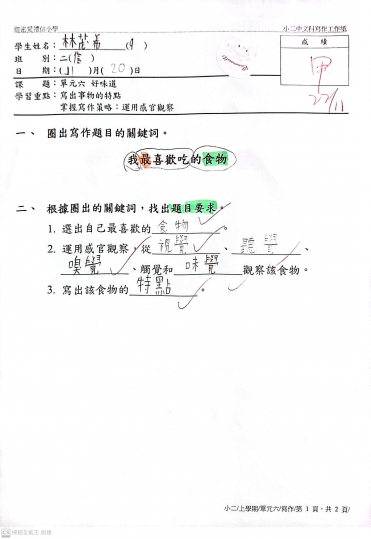 小二中文科寫作工作紙
學生姓名：林茂希(4)
成績
班　　別：二(信)
日　　期：(11)月(20)日
甲
22/11
課　　題：單元六 好味道
學習重點：寫出事物的特點
掌握寫作策略：運用感官觀察
一、 圈出寫作題目的關鍵詞。
我最喜歡吃的食物
二、 根據圈出的關鍵詞，找出題目要求。
1. 選出自己最喜歡的食物。
2. 運用感官觀察，從視覺、聽覺、
嗅覺、觸覺和味覺觀察該食物。
3. 寫出該食物的特點。
小二/上學期/單元六/寫作/第 1 頁，共 2 頁/
CS 掃描全能王 創建